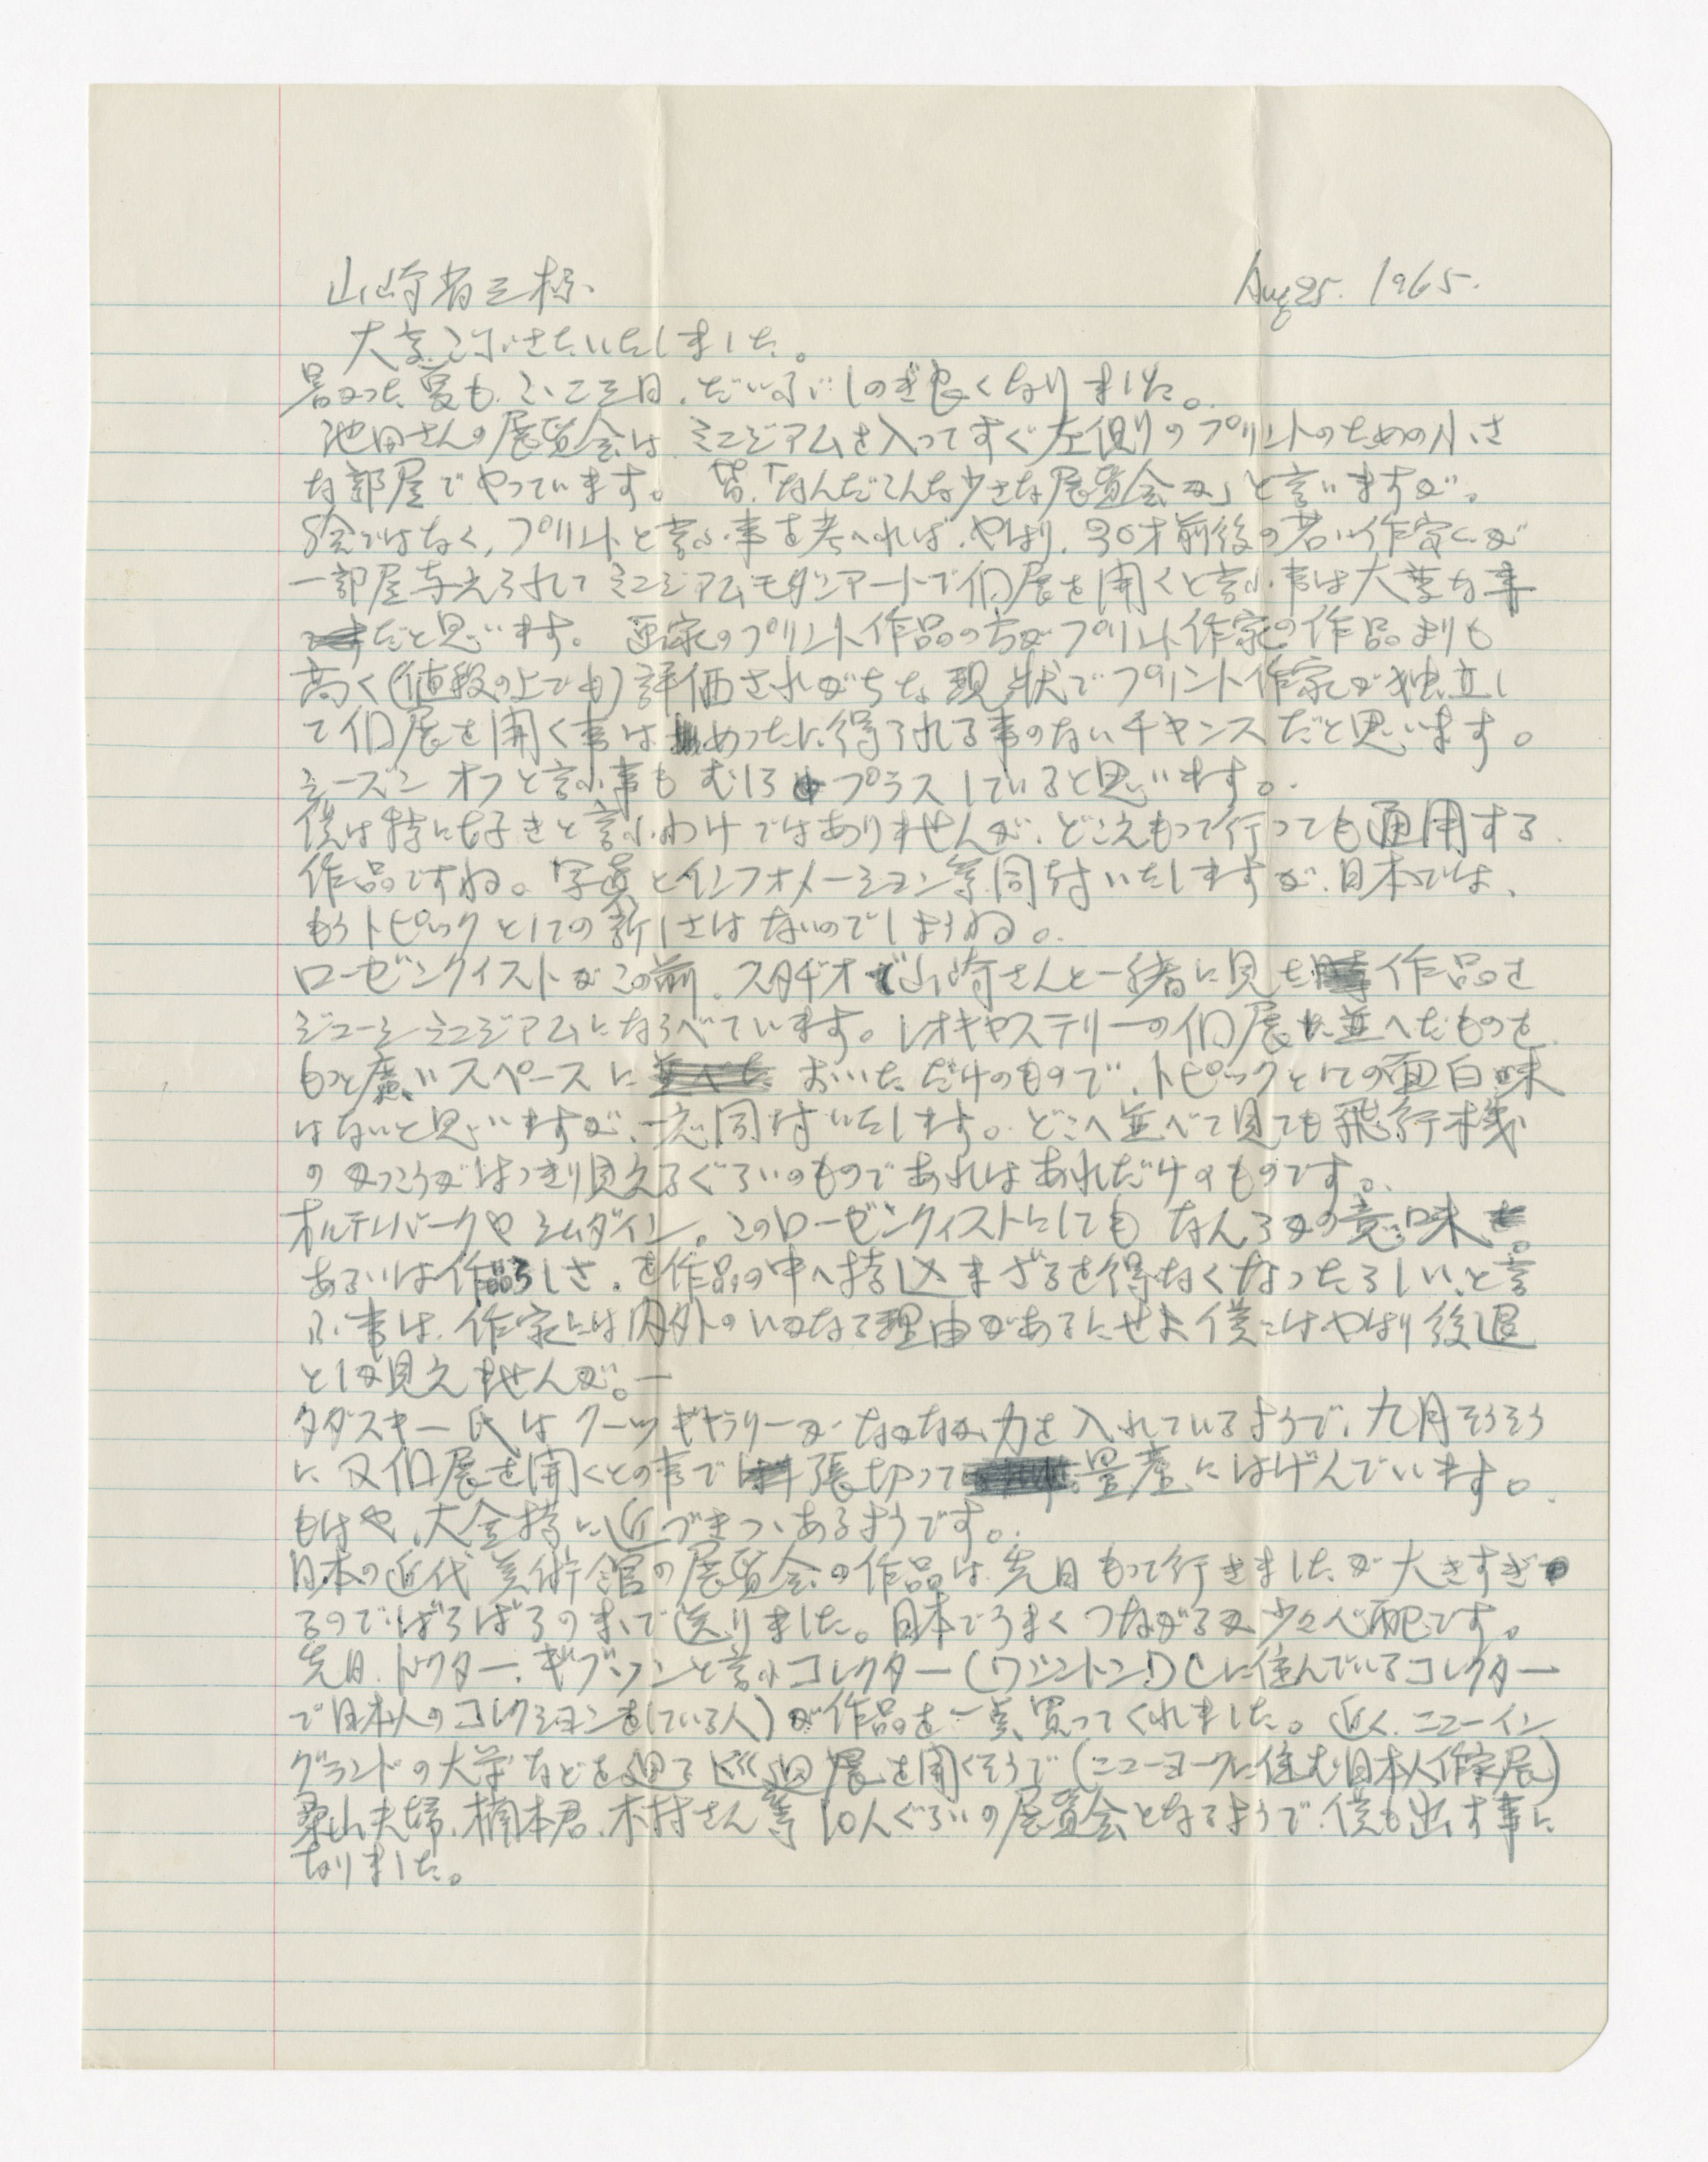 山崎省三様 Aug 25. 1965.
大変ごぶさたいたしました。
暑かった夏も、ここ二三日、だいぶしのぎ良くなりました。
池田さんの展覧会は、ミュージアムを入ってすぐ左側のプリントのための小さ
な部屋でやっています。皆、「なんだこんな少さな展覧会か」と言いますが。
絵ではなく、プリントと言ふ事を考へれば、やはり、30才前後の若い作家が
一部屋与えられてミュージアムモダンアートで個展を開くと言ふ事は大変な事
だと思います。画家のプリント作品の方がプリント作家の作品よりも
高く(値段の上でも)評価されがちな現状でプリント作家が独立し
て個展を開く事はめったに得られる事のないチャンスだと思います。
シーズンオフと言ふ事もむしろプラスしていると思います。
僕は特に好きと言ふわけではありませんが、どこえもって行っても通用する
作品ですね。写真とインフォメーション等同封いたしますが、日本では、
もうトピックとしての新しさはないのでしょうね。
ローゼンクイストがこの前、スタヂオで山崎さんと一緒に見た作品を
ジューシュミュージアムにならべています。レオキャステリーの個展に並へたものを
もっと廣いスペースにおいただけのもので、トピックとしての面白味
はないと思いますが、一応同封いたします。どこへ並べて見ても飛行機
のかっこうがはっきり見えるぐらいのものであれはあれだけのものです。
オルデンバークやジムダイン。このローゼンクィストにしてもなんらかの意味
あるいは作品らしさ、を作品の中へ持ち込まざるを得なくなったらしい、と言
ふ事は、作家には内外のいかなる理由があるにせよ僕にはやはり後退
としか見えませんが。一
タダスキー氏はクーツギャラリーがなかなか力を入れているようで、九月そうそう
に又個展を開くとの事で張切って量産にはげんでいます。
もはや、大金持に近づきつゝあるようです。
日本の近代美術館の展覧会の作品は、先日もって行きましたが大きすぎ
るのでばらばらのまゝで送りました。日本でうまくつながるか少々心配です。
先日、ドクター、ギブソンと言ふコレクター(ワシントンDCに住んでいるコレクター
で日本人のコレクションをしている人)が作品を一点買ってくれました。近く、ニューイン
グランドの大学などを廻る巡廻展を開くそうで(ニューヨークに住む日本人作家展)
桑山夫婦、楠本君、木村さん等10人ぐらいの展覧会となるようで、僕も出す事に
なりました。